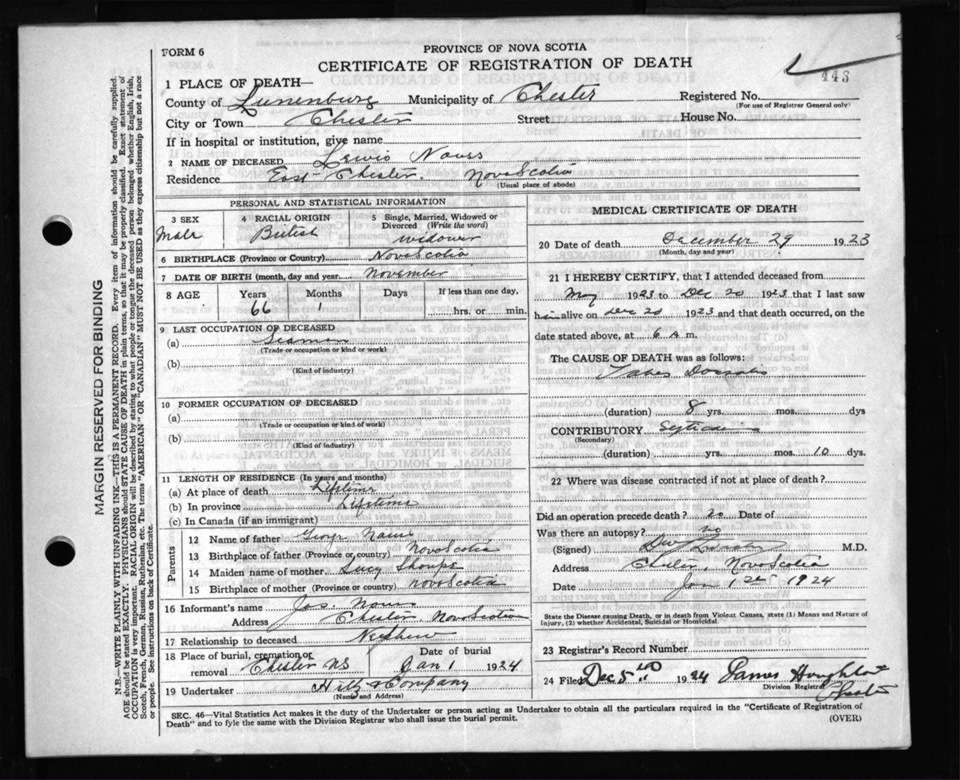 FORM 6
PROVINCE OF NOVA SCOTIA
CERTIFICATE OF REGISTRATION OF DEATH
443
1 PLACE OF DEATH—
County of Lunenburg Municipality of Chester Registered No.
(For use of Registrar General only)
City or Town Chester Street House No.
If in hospital or institution, give name
2 NAME OF DECEASED Lewis Nauss
Residence East Chester. Nova Scotia
(Usual place of abode)
PERSONAL AND STATISTICAL INFORMATION
3 SEX 4 RACIAL ORIGIN 5 Single, Married, Widowed or Divorced (Write the word)
Male British widower
6 BIRTHPLACE (Province or Country) Nova Scotia
7 DATE OF BIRTH (month, day and year) November
8 AGE Years Months Days If less than one day,
66 1 hrs. or min.
9 LAST OCCUPATION OF DECEASED
(a) Seaman
(Trade or occupation or kind or work)
(b)
(Kind of industry)
10 FORMER OCCUPATION OF DECEASED
(a)
(Trade or occupation or kind of work)
(b)
(Kind of industry)
11 LENGTH OF RESIDENCE (In years and months)
(a) At place of death Lifetime
(b) In province Lifetime
(c) In Canada (if an immigrant)
Parents
12 Name of father
13 Birthplace of father (Province or country) Nova Scotia
14 Maiden name of mother Lucy
15 Birthplace of mother (Province or country) Nova Scotia
16 Informant's name Jas.
Address Chester, Nova Scotia
17 Relationship to deceased Nephew
18 Place of burial, cremation or removal Chester NS Date of burial Jan 1 1924
19 Undertaker Hiltz & Company
(Name and Address)
MEDICAL CERTIFICATE OF DEATH
20 Date of death December 29 1923
(Month, day and year)
21 I HEREBY CERTIFY, that I attended deceased from
May 1923 to Dec 20 1923 that I last saw
him alive on Dec 20 1923 and that death occurred, on
date stated above, at 6 a m.
The CAUSE OF DEATH was as follows:
Tabes Dorsalis
(duration) 8 yrs. mos. dys
CONTRIBUTORY
(Secondary)
(duration) yrs. mos. 10 dys.
22 Where was disease contracted if not at place of death?
Did an operation precede death? no Date of
Was there an autopsy? no
(Signed) M.D.
Address Chester, Nova Scotia
Date Jan 1st 1924
State the Disease causing Death, or in death from Violent Causes, state (1) Means and Nature of
Injury, (2) whether Accidental, Suicidal or Homicidal.
23 Registrar's Record Number
24 Filed 1924 James
Division Registrar
Chester
SEC. 46—Vital Statistics Act makes it the duty of the Undertaker or person acting as Undertaker to obtain all the particulars required in the "Certificate of Registration of
Death" and to fyle the same with the Division Registrar who shall issue the burial permit.
(OVER)
MARGIN RESERVED FOR BINDING
N.B.—WRITE PLAINLY WITH UNFADING INK—THIS IS A PERMANENT RECORD. Every item of information should be carefully supplied.
AGE should be stated EXACTLY. PHYSICIANS should STATE CAUSE OF DEATH in plain terms, so that it may be properly classified. Exact statement of
OCCUPATION is very important. RACIAL ORIGIN will be described by stating to what people or tongue the deceased person belonged whether English, Irish,
Scotch, French, German, Russian, Ruthenian, etc. The terms "AMERICAN" OR "CANADIAN" MUST NOT BE USED as they express citizenship but not a race
or people. See instructions on back of Certificate.